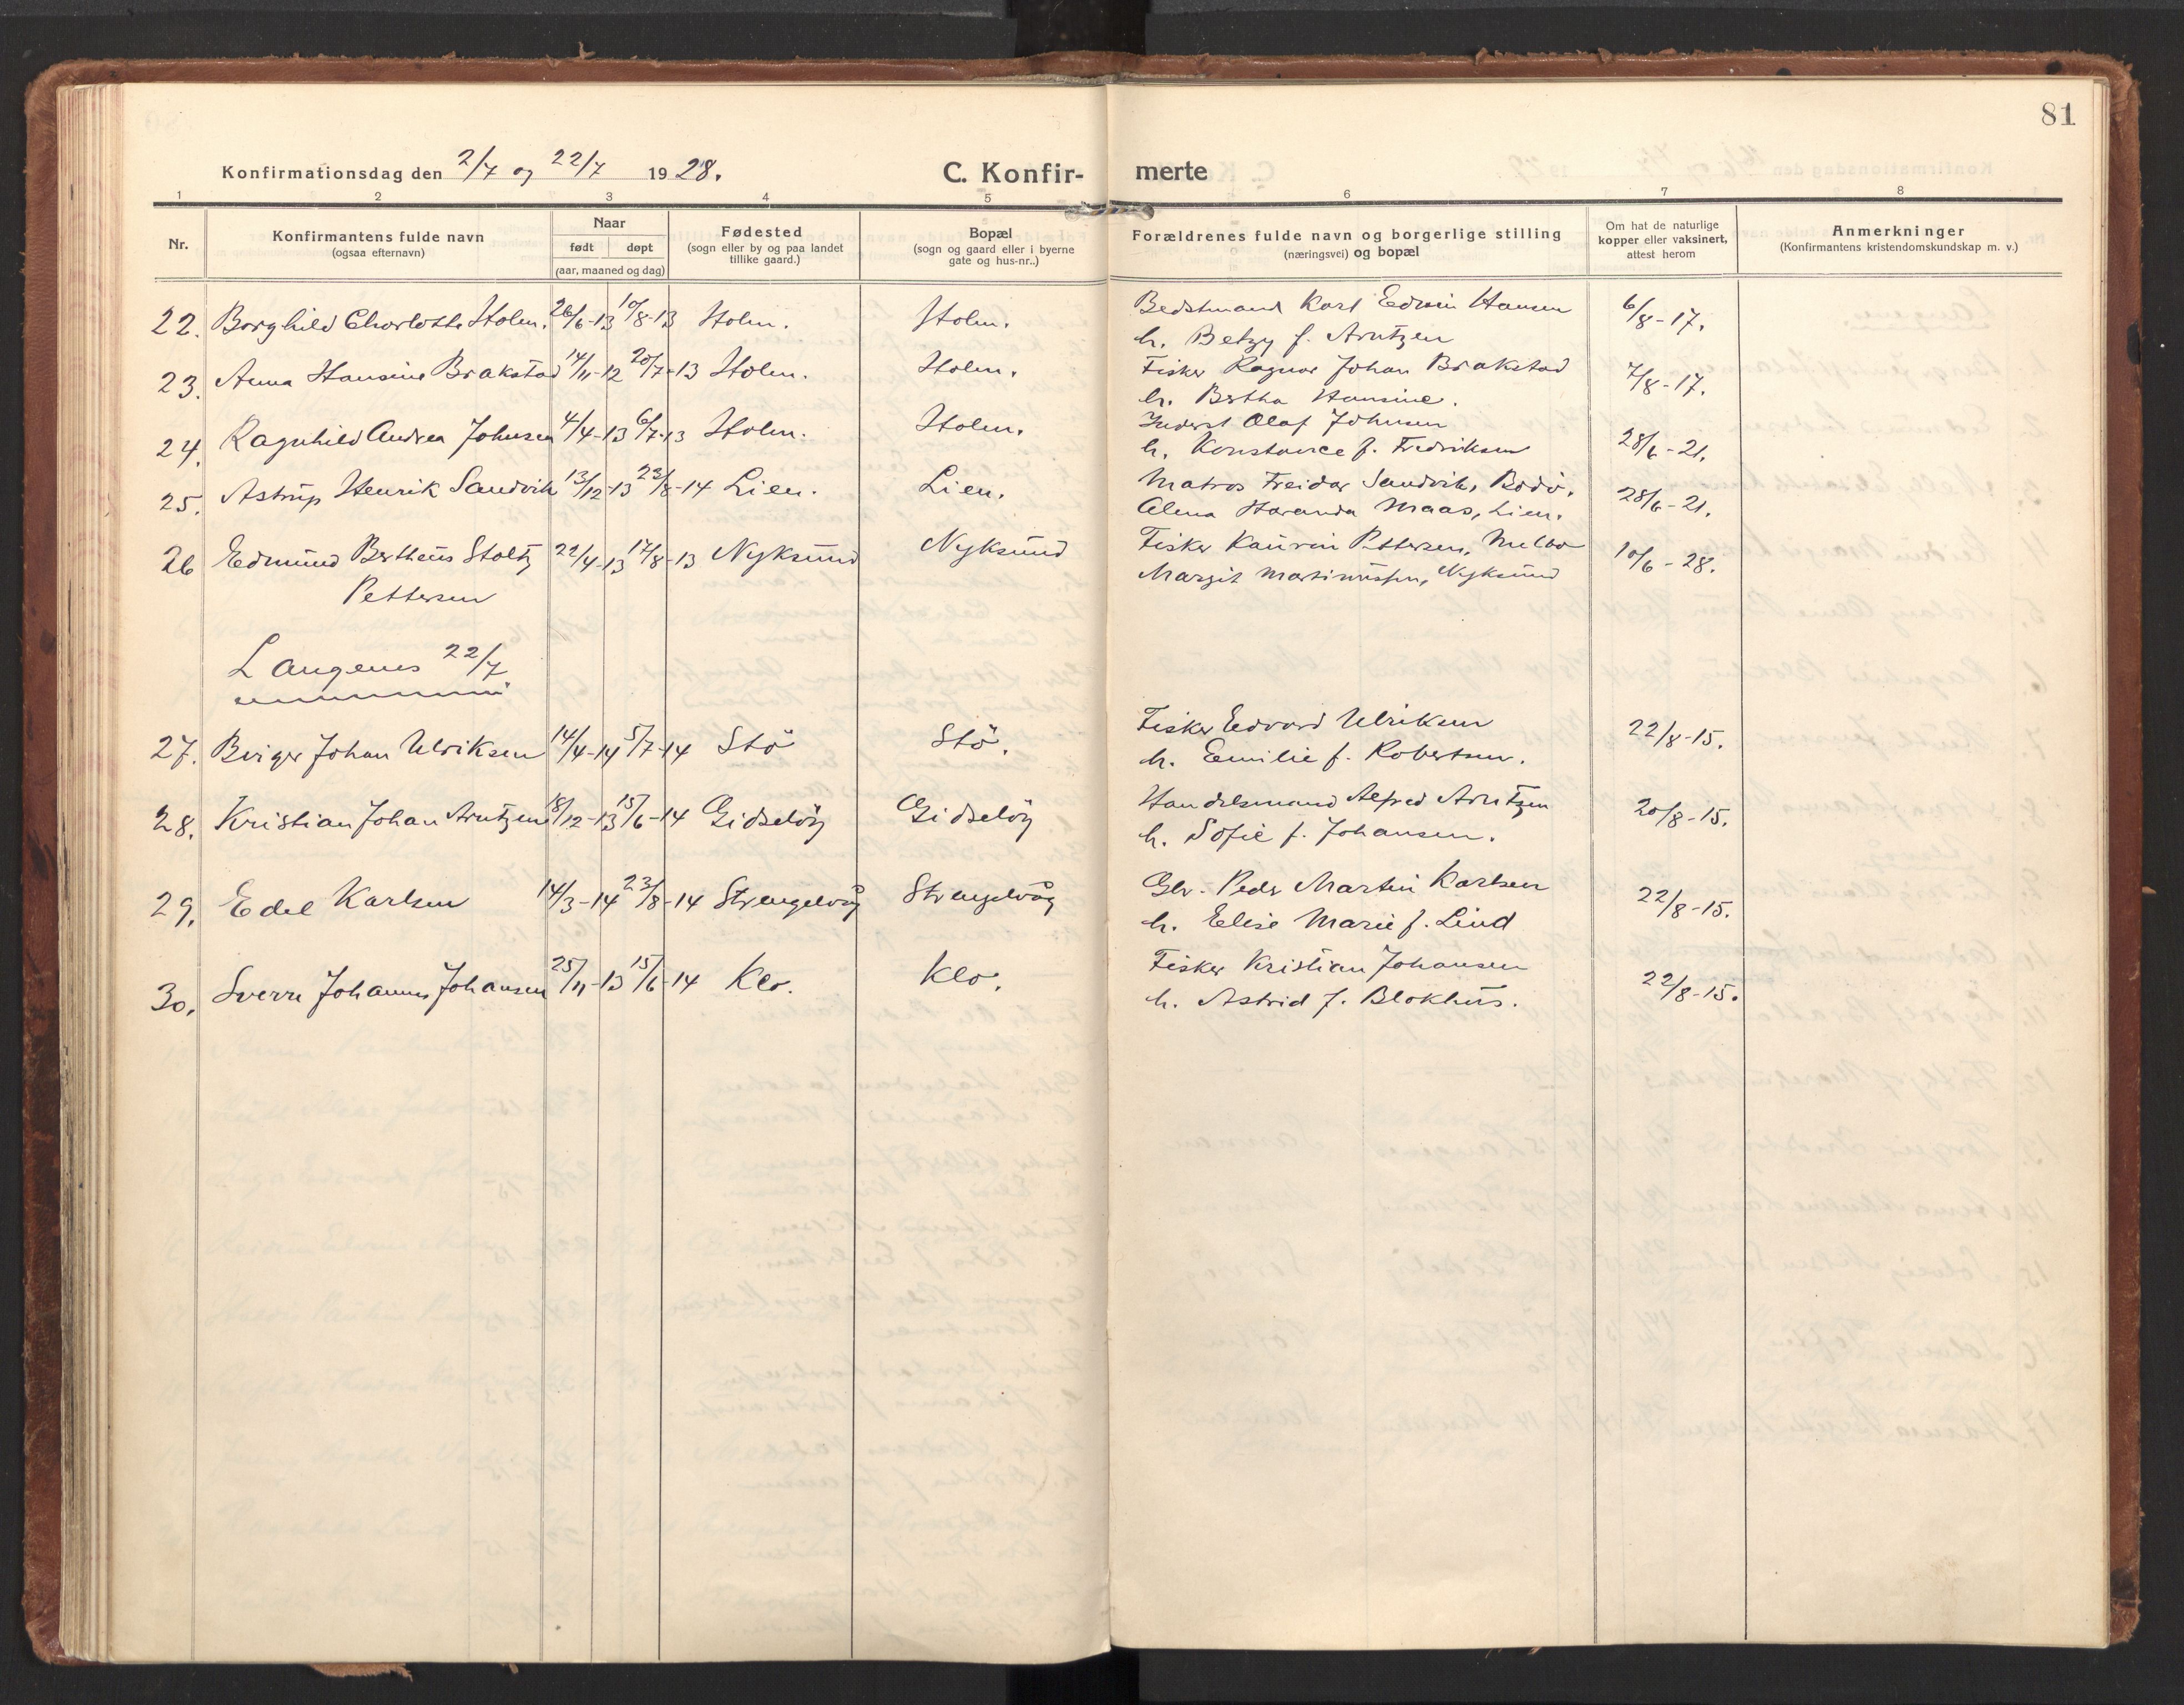 81
Konfirmationsdag den 2/7 og 22/7 1928.
C. Konfir-
merte
1 2 3 4 5 6 7 8
Nr.
Konfirmantens fulde navn
(ogsaa efternavn)
Naar
født døpt
(aar, maaned og dag)
Fødested
(sogn eller by og paa landet
tillike gaard.)
Bopæl
(sogn og gaard eller i byerne
gate og hus-nr..)
Forældrenes fulde navn og borgerlige stilling
(næringsvei) og bopæl
Om hat de naturlige
kopper eller vaksinert,
attest herom
Anmerkninger
(Konfirmantens kristendomskundskap m. v.)
22. Borghild Charlotte Holm. 26/6-13 10/8-13 Holm. Holm. Bedstmand Karl Edwin Hansen 6/8-17.
h. Betzy f. Arntzen
23. Anna Hansine Brakstad 14/11-12 20/7-13 Holm. Holm. Fisker Ragnar Johan Brakstad 7/8-17.
h. Bertha Hansine.
24. Ragnhild Andrea Johnsen 4/4-13 6/7-13 Holm. Holm. Inderst Olaf Johnsen 28/6-21.
h. Konstance f. Fredriksen
25. Astrup Henrik Sandvik 13/12-13 23/8-14 Lien. Lien. Matros Freidar Sandvik, Bodö. 28/6-21.
Alma Haranda Maas, Lien.
26 Edmund Bertheus Stoltz 22/4-13 17/8-13 Nyksund Nyksund Fisker Kaurin Pettersen, Melbo 10/6-28.
Pettersen Margit Martinussen, Nyksund
Langenes 22/7
27. Birger Johan Ulriksen 14/4-14 5/7-14 Stö Stö. Fisker Edvard Ulriksen 22/8-15.
h. Emilie f. Robertsen.
28. Kristian Johan Arntzen 18/12-13 15/6-14 Gidselöy Gidselöy Handelsmand Alfred Arntzen 20/8-15.
h. Sofie f. Johansen.
29. Edel Karlsen 14/3-14 23/8-14 Strengelvåg Strengelvåg Gbr. Peder Martin Karlsen 22/8-15.
h. Elise Marie f. Lind
30. Sverre Johannes Johansen 25/11-13 15/6-14 Klo. Klo. Fisker Kristian Johansen 22/8-15.
h. Astrid f. Blokhus.